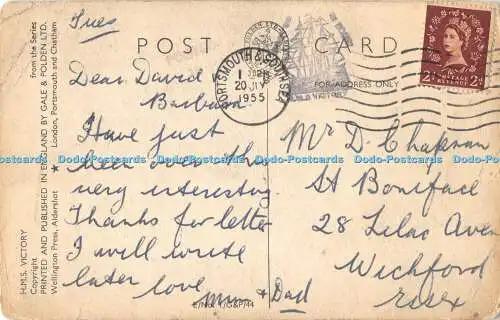 Tues
POST CARD
FOR ADDRESS ONLY
Dear David &
Barbara
Have just
been over this
very interesting
Thanks for letter
I will write
later love
Mum & Dad
Mr D. Chapman
St Boniface
28 Lilac Aven
Wickford
Essex
PORTSMOUTH & SOUTHSEA
20 JLY
1955
POSTAGE
REVENUE
2D 2D
H.M.S. VICTORY
Copyright
PRINTED AND PUBLISHED IN ENGLAND BY GALE & POLDEN LTD.
Wellington Press, Aldershot ★ London, Portsmouth and Chatham
from the Series
Dodo-Postcards Dodo-Postcards Dodo-Postcards Dodo-Postcards Dodo-Postcards Dodo-Postcards